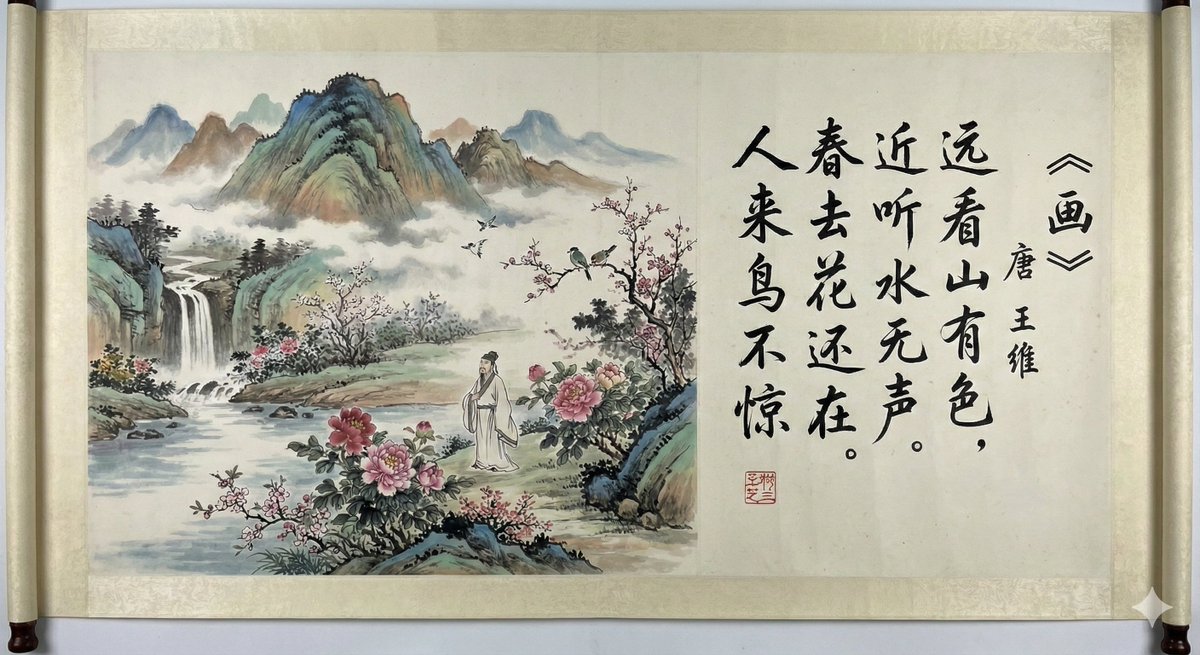 《画》
唐 王维
远看山有色，
近听水无声。
春去花还在。
人来鸟不惊